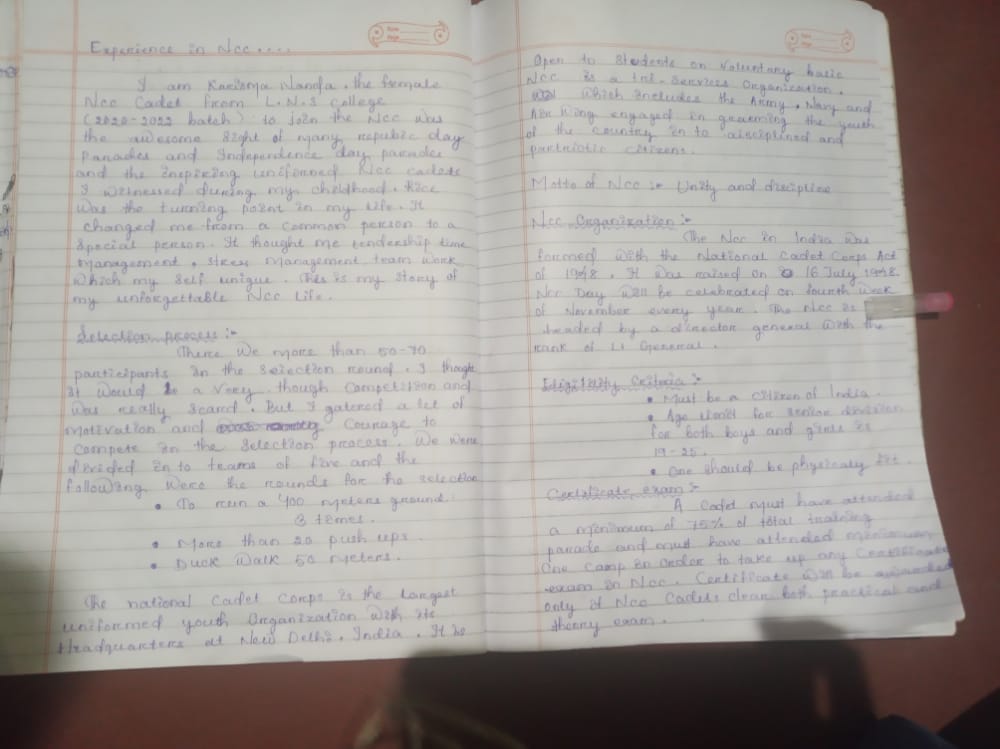 Experience in Ncc....
I am Karisma Nanda, the female
Ncc Cadet from L.N.S College
(2020-2022 batch) to join the Ncc was
the awesome sight of many republic day
Parades and Independence day parades
and the inspiring uniformed Ncc cadets
I witnessed during my childhood.
was the turning point in my life. It
changed me from a common person to a
special person. It thought me leadership time
management, stress management team work
which my self unique. This is my story of
my unforgettable Ncc life.
Selection process :-
There we more than 50-70
participants in the selection round. I thought
it would be a very though competition and
was really scared. But I gatered a lot of
motivation and courage to
compete in the selection process. We were
divided in to teams of five and the
following were the rounds for the selection
• To run a 400 meters ground
3 times.
• More than 20 push ups.
• Duck walk 50 meters.
The national Cadet Corps is the Largest
uniformed youth Organization with its
Headquarters at New Delhi, India. It is
Open to Students on Voluntary basic
Ncc is a tri-Services Organization.
which includes the Army, Navy and
Air Wing engaged in grooming the youth
of the country in to disciplined and
patriotic citizens.
Motto of Ncc :- Unity and discipline
Ncc Organization :-
The Ncc in India was
formed with the National Cadet Corps Act
of 1948. It was raised on 16 July 1948.
Ncc Day will be celebrated on fourth week
of November every year. The Ncc is
headed by a director general with the
rank of Lt General.
Eligibility Criteria :-
• Must be a citizen of India.
• Age limit for senior division
for both boys and girls is
19-25.
• One should be physicaly fit.
Certificate exam :-
A Cadet must have attended
a minimum of 75% of total training
parade and must have attended minimum
One camp in order to take up any Certificate
exam in Ncc. Certificate will be awarded
only if Ncc Cadets clear both practical and
theory exam.